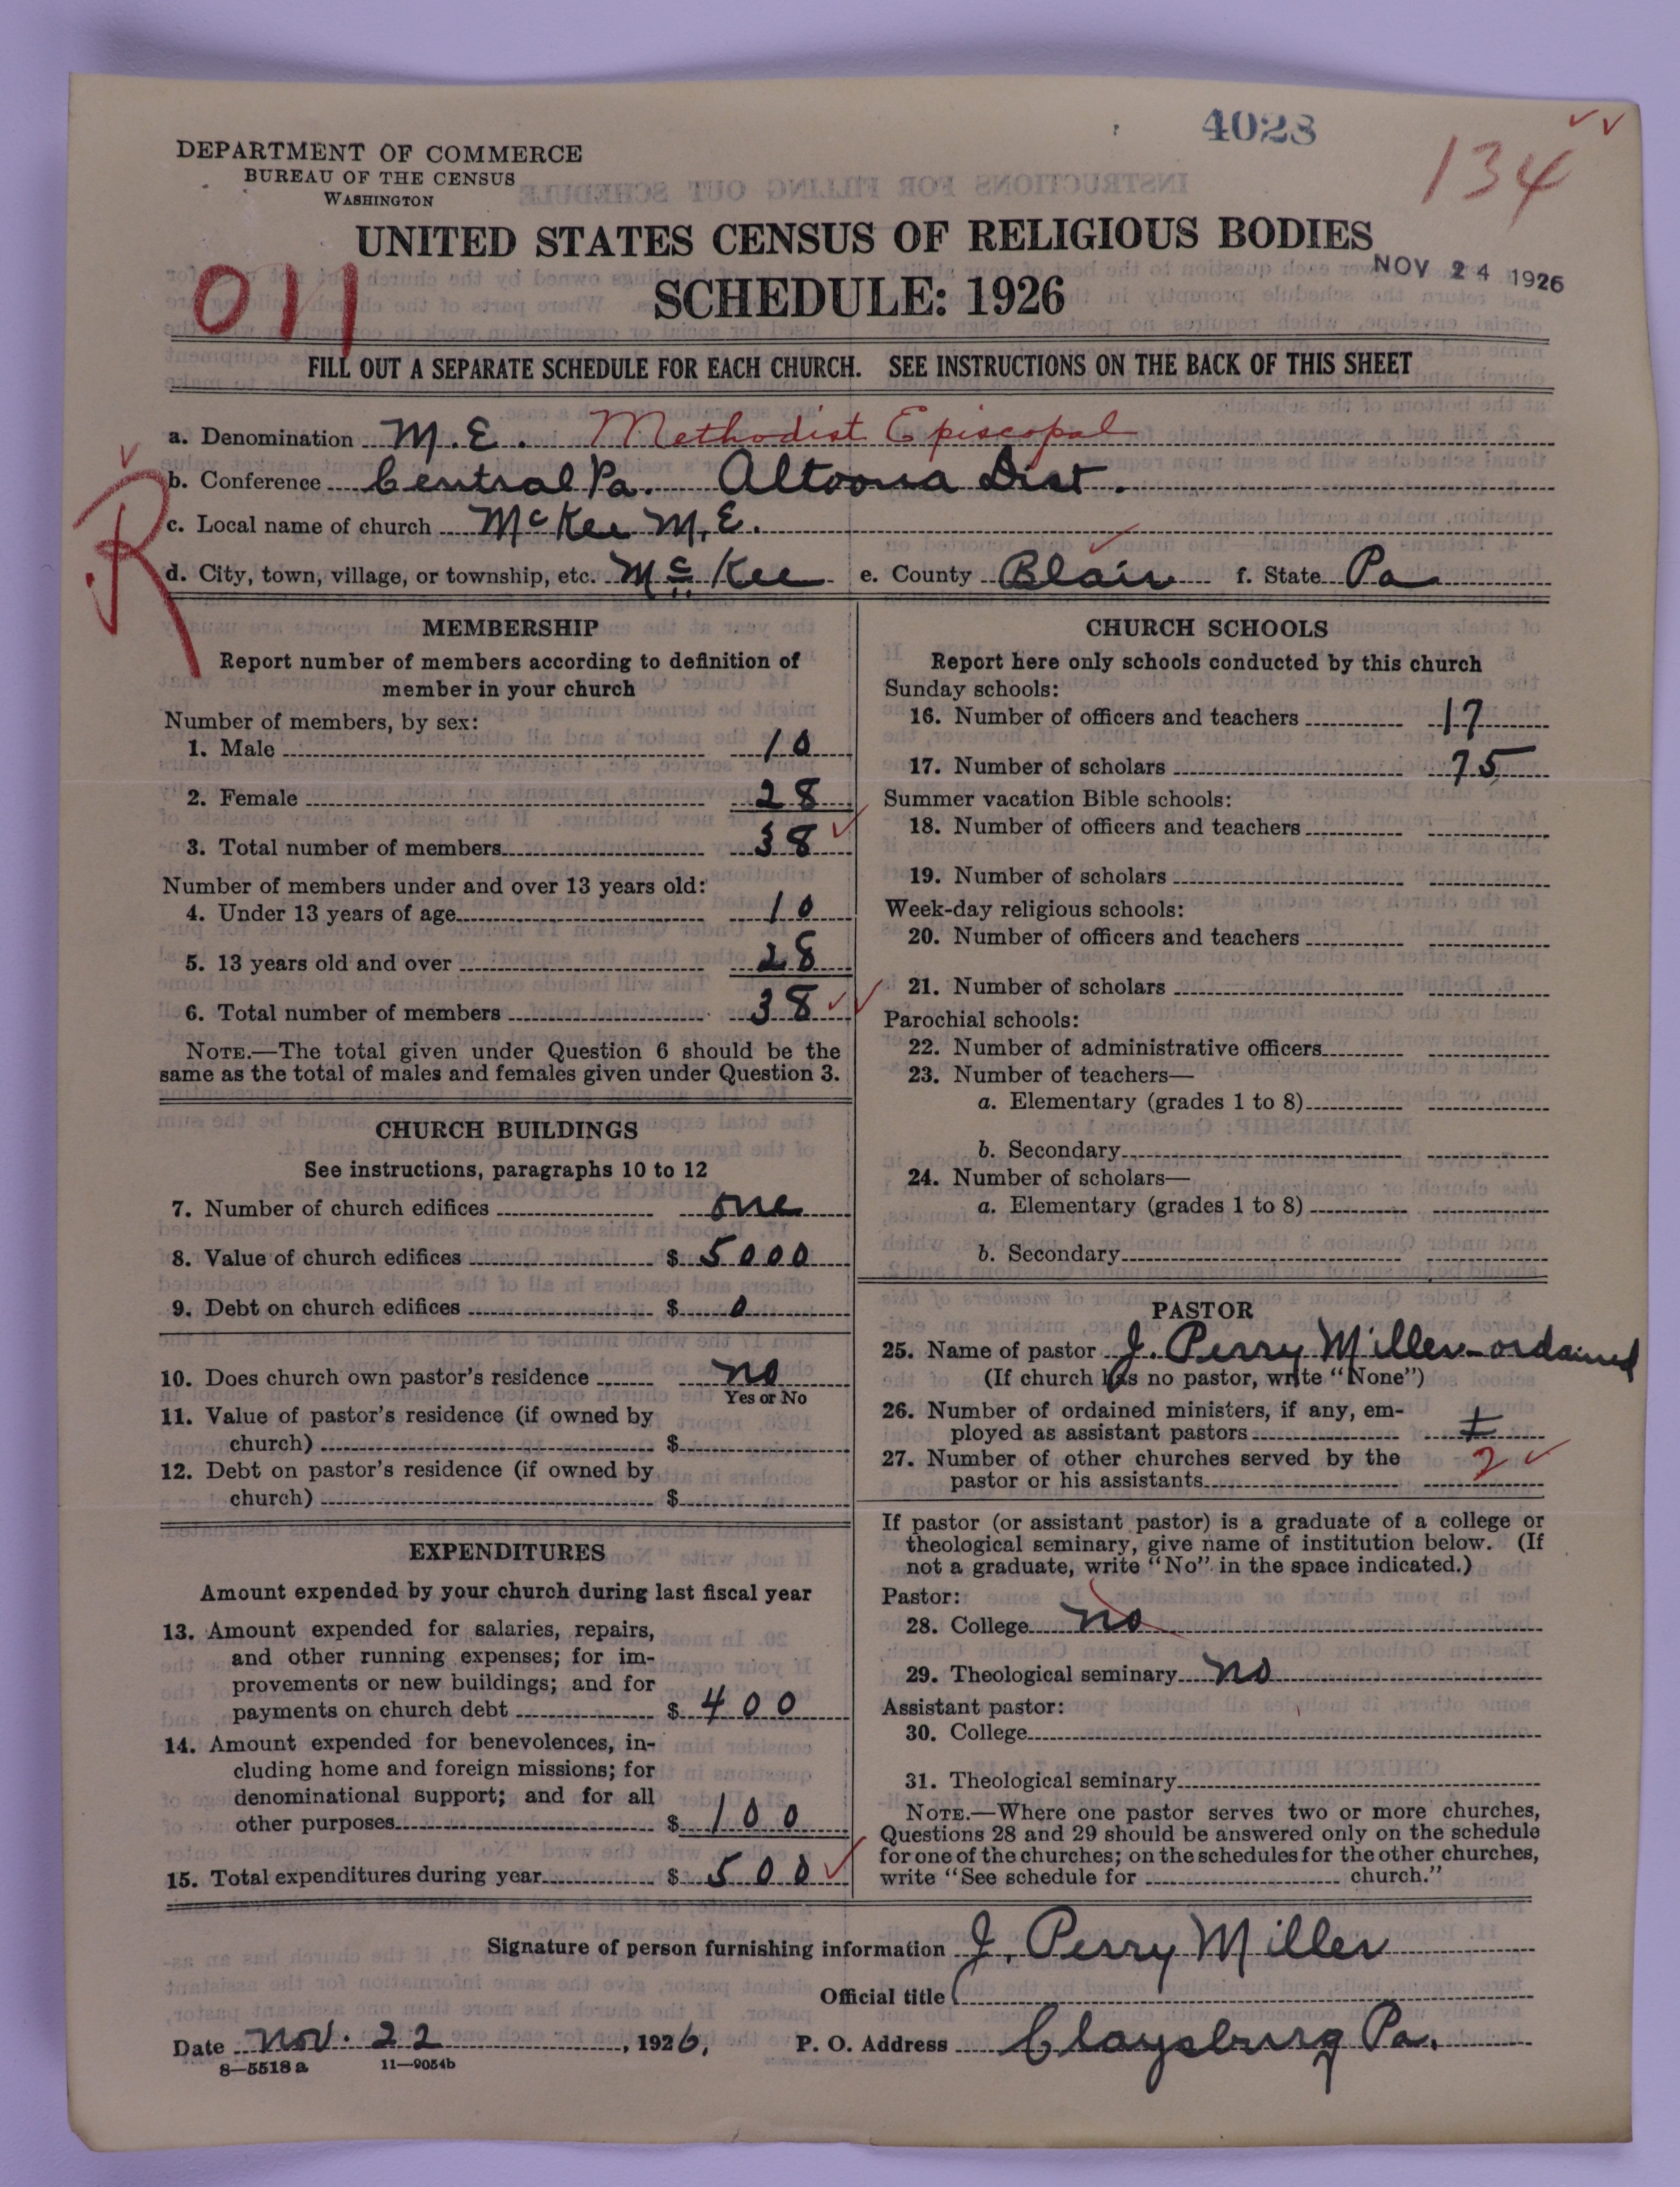 4028
134
DEPARTMENT OF COMMERCE
BUREAU OF THE CENSUS
WASHINGTON
UNITED STATES CENSUS OF RELIGIOUS BODIES
NOV 24 1926
011
SCHEDULE: 1926
FILL OUT A SEPARATE SCHEDULE FOR EACH CHURCH. SEE INSTRUCTIONS ON THE BACK OF THIS SHEET
a. Denomination M.E. Methodist Episcopal
b. Conference Central Pa. Altoona Dist.
R
c. Local name of church McKee M.E.
d. City, town, village, or township, etc. McKee e. County Blair f. State Pa
MEMBERSHIP
Report number of members according to definition of
member in your church
Number of members, by sex:
1. Male 10
2. Female 28
3. Total number of members 38
Number of members under and over 13 years old:
4. Under 13 years of age 10
5. 13 years old and over 28
6. Total number of members 38
NOTE.—The total given under Question 6 should be the
same as the total of males and females given under Question 3.
CHURCH BUILDINGS
See instructions, paragraphs 10 to 12
7. Number of church edifices one
8. Value of church edifices $ 5000
9. Debt on church edifices $ 0
10. Does church own pastor's residence no
Yes or No
11. Value of pastor's residence (if owned by
church) $
12. Debt on pastor's residence (if owned by
church) $
EXPENDITURES
Amount expended by your church during last fiscal year
13. Amount expended for salaries, repairs,
and other running expenses; for im-
provements or new buildings; and for
payments on church debt $ 400
14. Amount expended for benevolences, in-
cluding home and foreign missions; for
denominational support; and for all
other purposes $ 100
15. Total expenditures during year $ 500
CHURCH SCHOOLS
Report here only schools conducted by this church
Sunday schools:
16. Number of officers and teachers 17
17. Number of scholars 75
Summer vacation Bible schools:
18. Number of officers and teachers
19. Number of scholars
Week-day religious schools:
20. Number of officers and teachers
21. Number of scholars
Parochial schools:
22. Number of administrative officers
23. Number of teachers—
a. Elementary (grades 1 to 8)
b. Secondary
24. Number of scholars—
a. Elementary (grades 1 to 8)
b. Secondary
PASTOR
25. Name of pastor J. Perry Miller - ordained
(If church has no pastor, write "None")
26. Number of ordained ministers, if any, em-
ployed as assistant pastors
27. Number of other churches served by the
pastor or his assistants 2
If pastor (or assistant pastor) is a graduate of a college or
theological seminary, give name of institution below. (If
not a graduate, write "No" in the space indicated.)
Pastor:
28. College no
29. Theological seminary no
Assistant pastor:
30. College
31. Theological seminary
NOTE.—Where one pastor serves two or more churches,
Questions 28 and 29 should be answered only on the schedule
for one of the churches; on the schedules for the other churches,
write "See schedule for church."
Signature of person furnishing information J. Perry Miller
Official title
Date Nov. 22, 1926. P. O. Address Claysburg Pa.
8—5518 a 11—9054b